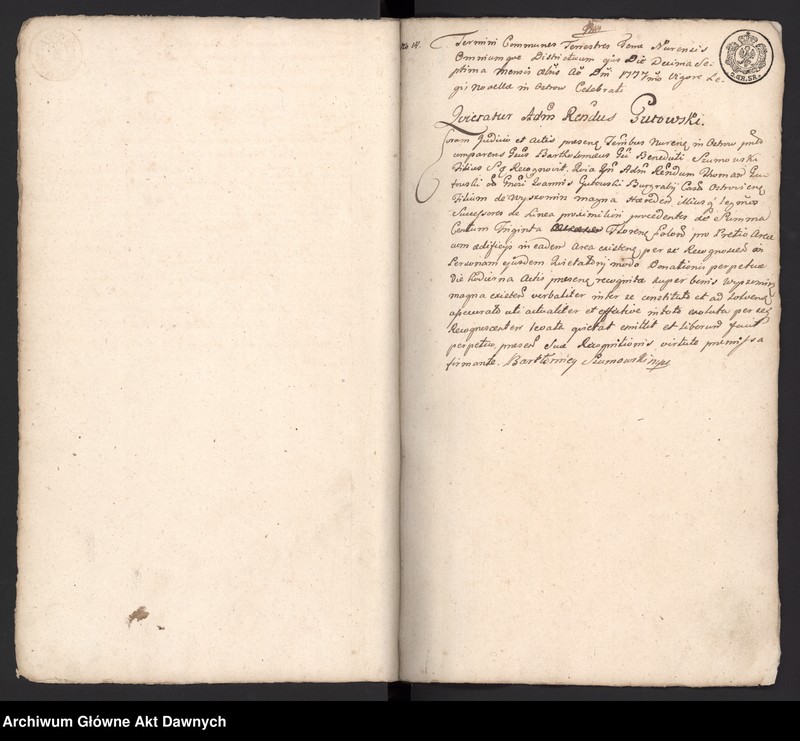 Termini Communes Terrestres Terrae Nurensis
Omniumque Districtuum ejus Die Decima Se-
ptima Mensis Ao Dni 1777mo Vigore Le-
gis Novellae in Ostrow Celebrati
Quietatur Adm Rendus Gutowski.
Coram Judicio et Actis presens Terribus Nurens in Ostrow
comparens Gsus Bartholomaeus Gsi Benedicti Szumowski
Filius Recognovit. Quia Adm Rendum Thomam Gu-
towski Gnsi Joannis Gutowski Burgrabij Ostroviens
Filium de Wyszomin magna Haeredem illius q
Successores de Linea proximiliori procedentes de Summa
Centum Triginta Florens polon pro Pretio Areae
cum aedificijs in eadem Area existens per se Recognoscen in
Personam ejusdem Quietatorij modo Donationis perpetuae
die hodierna Actis presens recognitae super bonis Wyszomin
magna existen verbaliter inter se constituto et ad solvend
apacurato uti actualiter et effective in toto exoluta per se
Recognoscenten levata quietat emittit et liberum facit
perpetuo, presen Suae Recognitionis virtute premissa
firmante. Bartłomiey Szumowski mp
5. GR. SR.
Archiwum Główne Akt Dawnych